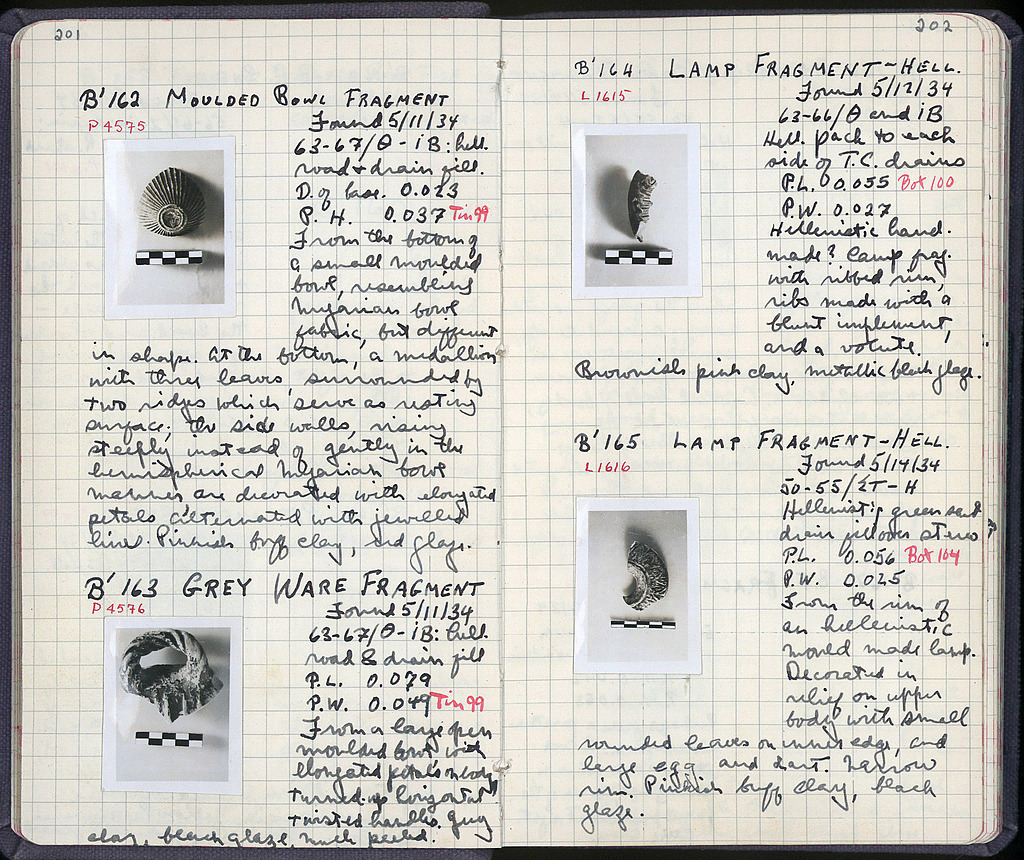 201
B'162 MOULDED BOWL FRAGMENT
P 4575
Found 5/11/34
63-67/Θ-IB: hell.
road & drain fill.
D. of base. 0.023
P. H. 0.037 Tin 99
From the bottom of
a small moulded
bowl, resembling
Megarian bowl
fabric, but different
in shape. At the bottom, a medallion
with three leaves, surrounded by
two ridges which serve as resting
surface; the side walls, rising
steeply instead of gently in the
hemispherical Megarian bowl
manner are decorated with elongated
petals alternated with jewelled
lines. Pinkish buff clay, red glaze.
B'163 GREY WARE FRAGMENT
P 4576
Found 5/11/34
63-67/Θ-IB: hell.
road & drain fill
P.L. 0.079
P.W. 0.049 Tin 99
From a large open
moulded bowl with
elongated petals on body
turned-up horizontal
twisted handles. Grey
clay, black glaze, much peeled.
202
B'164 LAMP FRAGMENT-HELL.
L 1615
Found 5/12/34
63-66/Θ and IB
Hell. pack to each
side of T.C. drains
P.L. 0.055 Box 100
P.W. 0.027
Hellenistic hand.
made? lamp frag.
with ribbed rim,
ribs made with a
blunt implement,
and a volute.
Brownish pink clay, metallic black glaze.
B'165 LAMP FRAGMENT-HELL.
L 1616
Found 5/14/34
50-55/ΣT-H
Hellenistic green sand
drain fill over
P.L. 0.056 Box 104
P.W. 0.025
From the rim of
an hellenistic
mould made lamp.
Decorated in
relief on upper
body with small
rounded leaves on inner edge, and
large egg and dart. Narrow
rim. Pinkish buff clay, black
glaze.